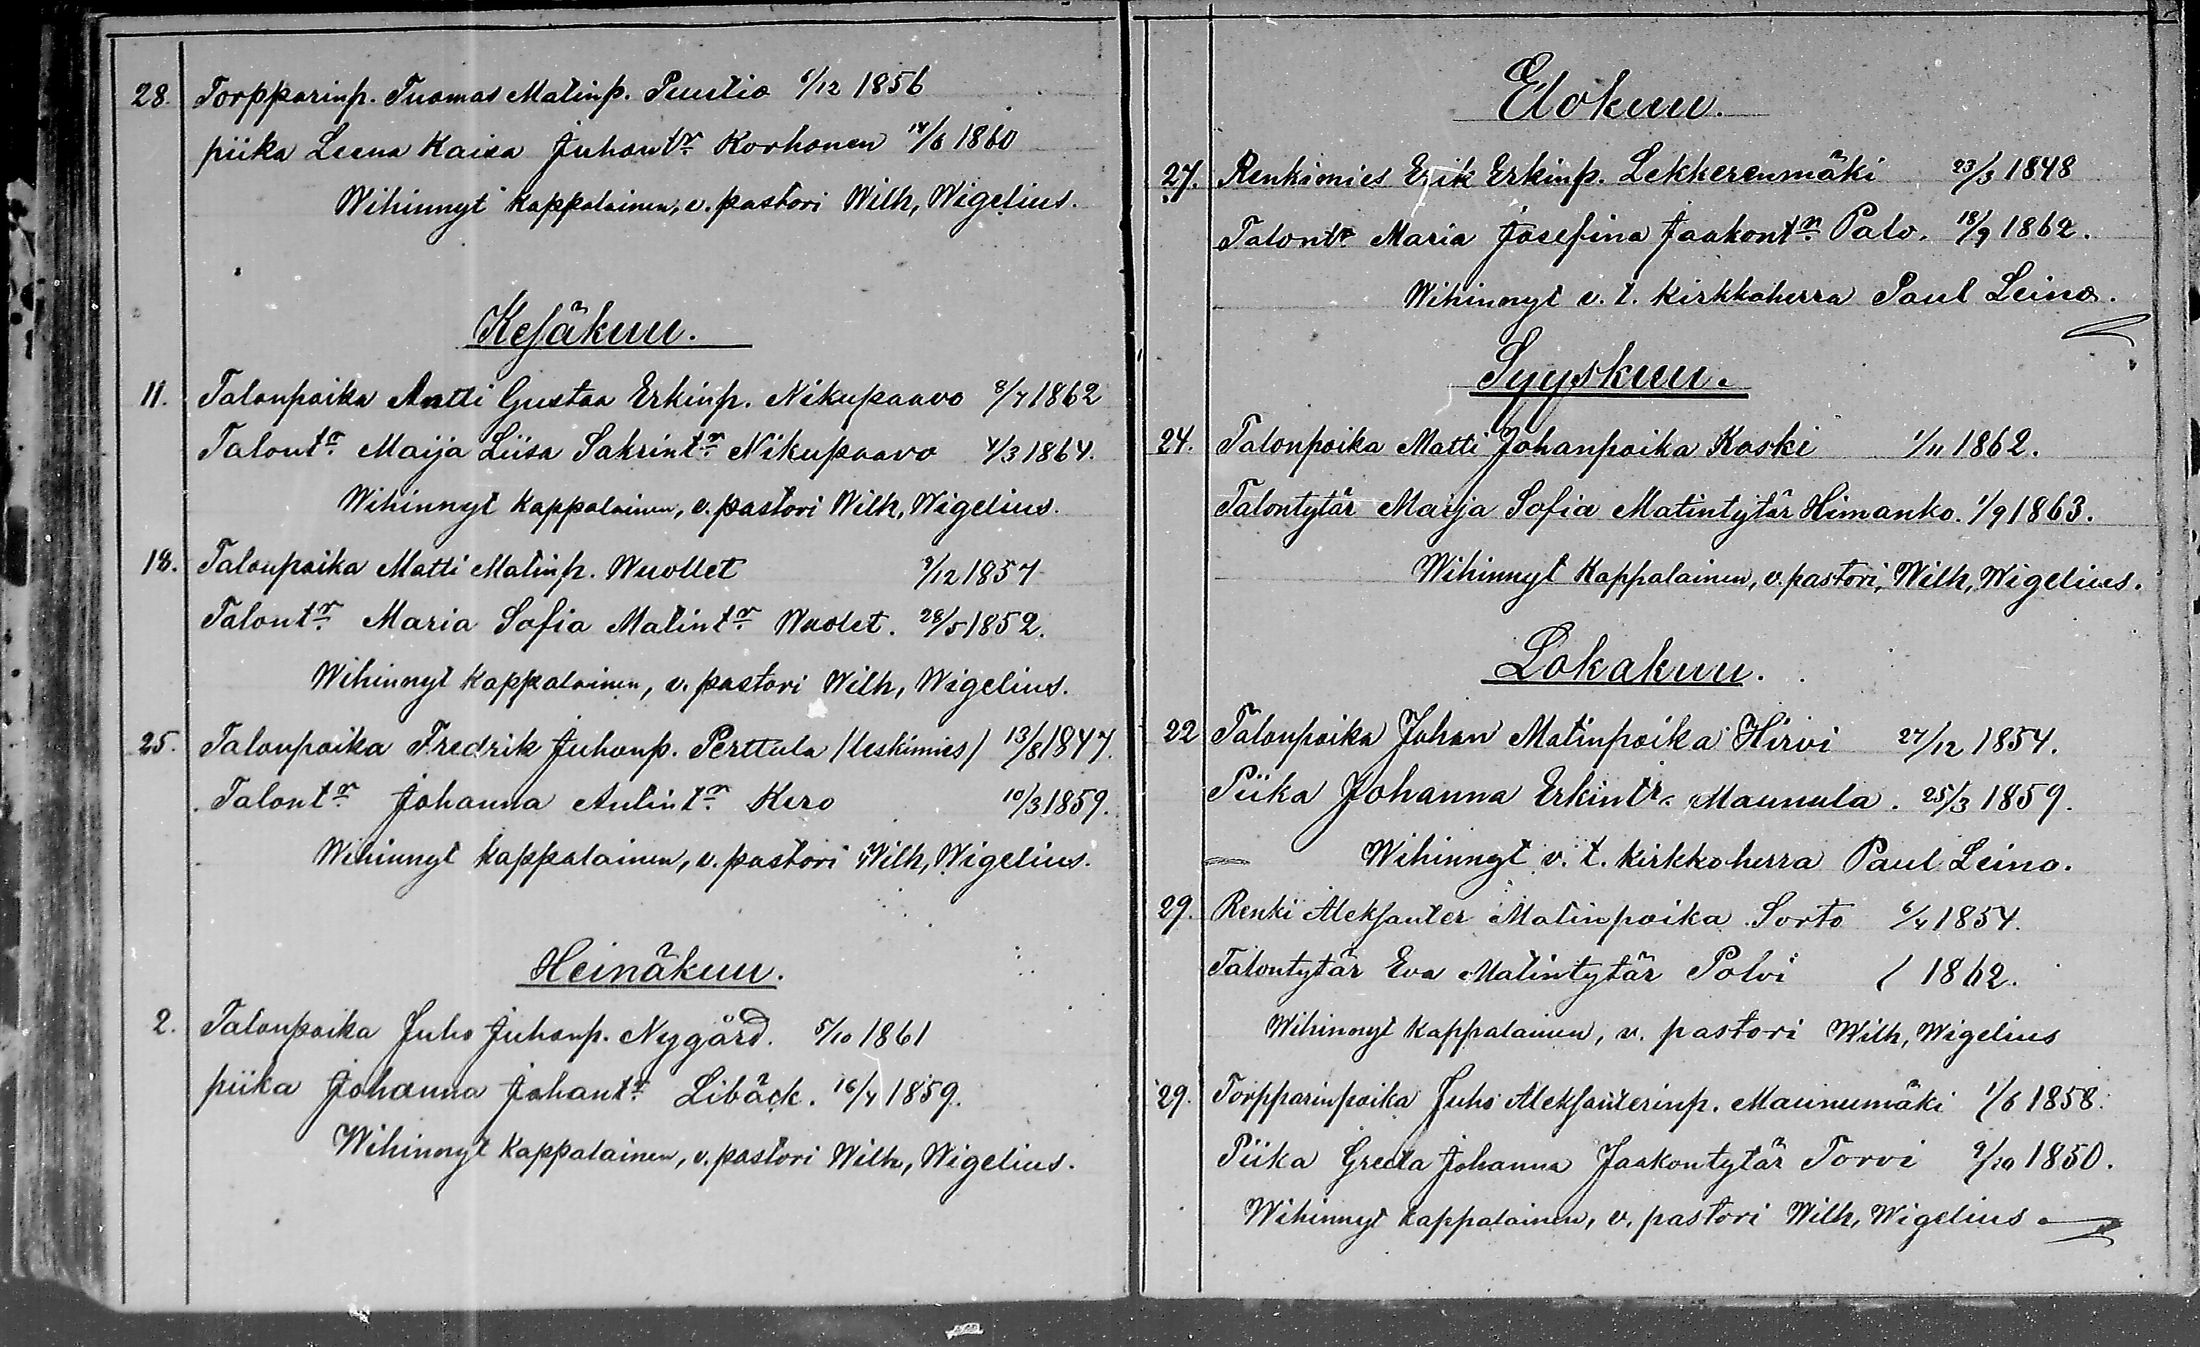 28. Torpparinp. Tuomas Matinp. Puutio 6/12 1856
piika Leena Kaisa Juhontr. Korhonen 14/6 1860
Wihinnyt kappalainen, v. pastori Wilh, Wigelius.
Kesäkuu.
11. Talonpoika Antti Gustaa Erkinp. Nikupaavo 8/7 1862
Talontr. Maija Liisa Sakrintr. Nikupaavo 4/3 1864.
Wihinnyt kappalainen, v. pastori Wilh, Wigelius.
18. Talonpoika Matti Matinp. Wuollet 9/12 1857
Talontr. Maria Sofia Matintr. Wuolet. 28/5 1852.
Wihinnyt kappalainen, v. pastori Wilh, Wigelius.
25. Talonpoika Fredrik Juhonp. Perttula /leskimies/ 13/8 1847.
Talontr. Johanna Antintr. Kero 10/3 1859.
Wihinnyt kappalainen, v. pastori Wilh, Wigelius.
Heinäkuu.
2. Talonpoika Juho Juhonp. Nygård. 5/10 1861
piika Johanna Johantr. Libäck. 16/4 1859.
Wihinnyt kappalainen, v. pastori Wilh, Wigelius.
Elokuu.
27. Renkimies Erik Erkinp. Lekkerenmäki 23/3 1848
Talontr Maria Josefina Jaakontr. Palo. 18/9 1862.
Wihinnyt v. t. kirkkoherra Paul Leino.
Syyskuu.
24. Talonpoika Matti Johanpoika Koski 1/11 1862.
Talontytär Marja Sofia Matintytär Himanko. 1/9 1863.
Wihinnyt kappalainen, v. pastori, Wilh, Wigelius.
Lokakuu.
22 Talonpoika Johan Matinpoika Hirvi 27/12 1854.
Piika Johanna Erkintr. Maunula. 25/3 1859.
Wihinnyt v. t. kirkkoherra Paul Leino.
29. Renki Aleksanter Matinpoika Sorto 6/4 1854.
Talontytär Eva Matintytär Polvi / 1862.
Wihinnyt kappalainen, v. pastori Wilh, Wigelius
29. Torpparinpoika Juho Aleksanterinp. Maunumäki 1/6 1858.
Piika Greeta Johanna Jaakontytär Torvi 9/10 1850.
Wihinnyt kappalainen, v. pastori Wilh, Wigelius.